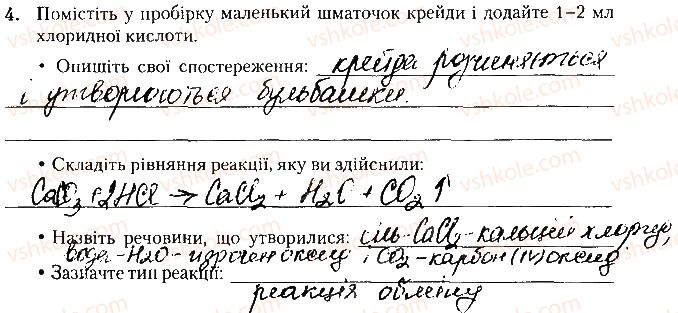 4. Помістіть у пробірку маленький шматочок крейди і додайте 1–2 мл
хлоридної кислоти.
• Опишіть свої спостереження: крейда розчиняється
і утворюються бульбашки.
• Складіть рівняння реакції, яку ви здійснили:
CaCO3 + 2HCl → CaCl2 + H2O + CO2↑
• Назвіть речовини, що утворилися: сіль-CaCl2-кальцій хлорид,
вода-H2O-гідроген оксид, CO2-карбон(IV)оксид
• Зазначте тип реакції:
реакція обміну
vshkole.com